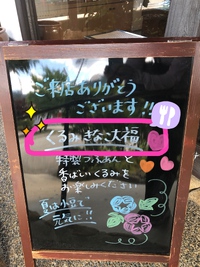 ご来店ありがとう
ございます!!
くるみきなこ大福
特製つぶあんと
香ばしいくるみを
お楽しみください
夏は小豆で
元気に!!